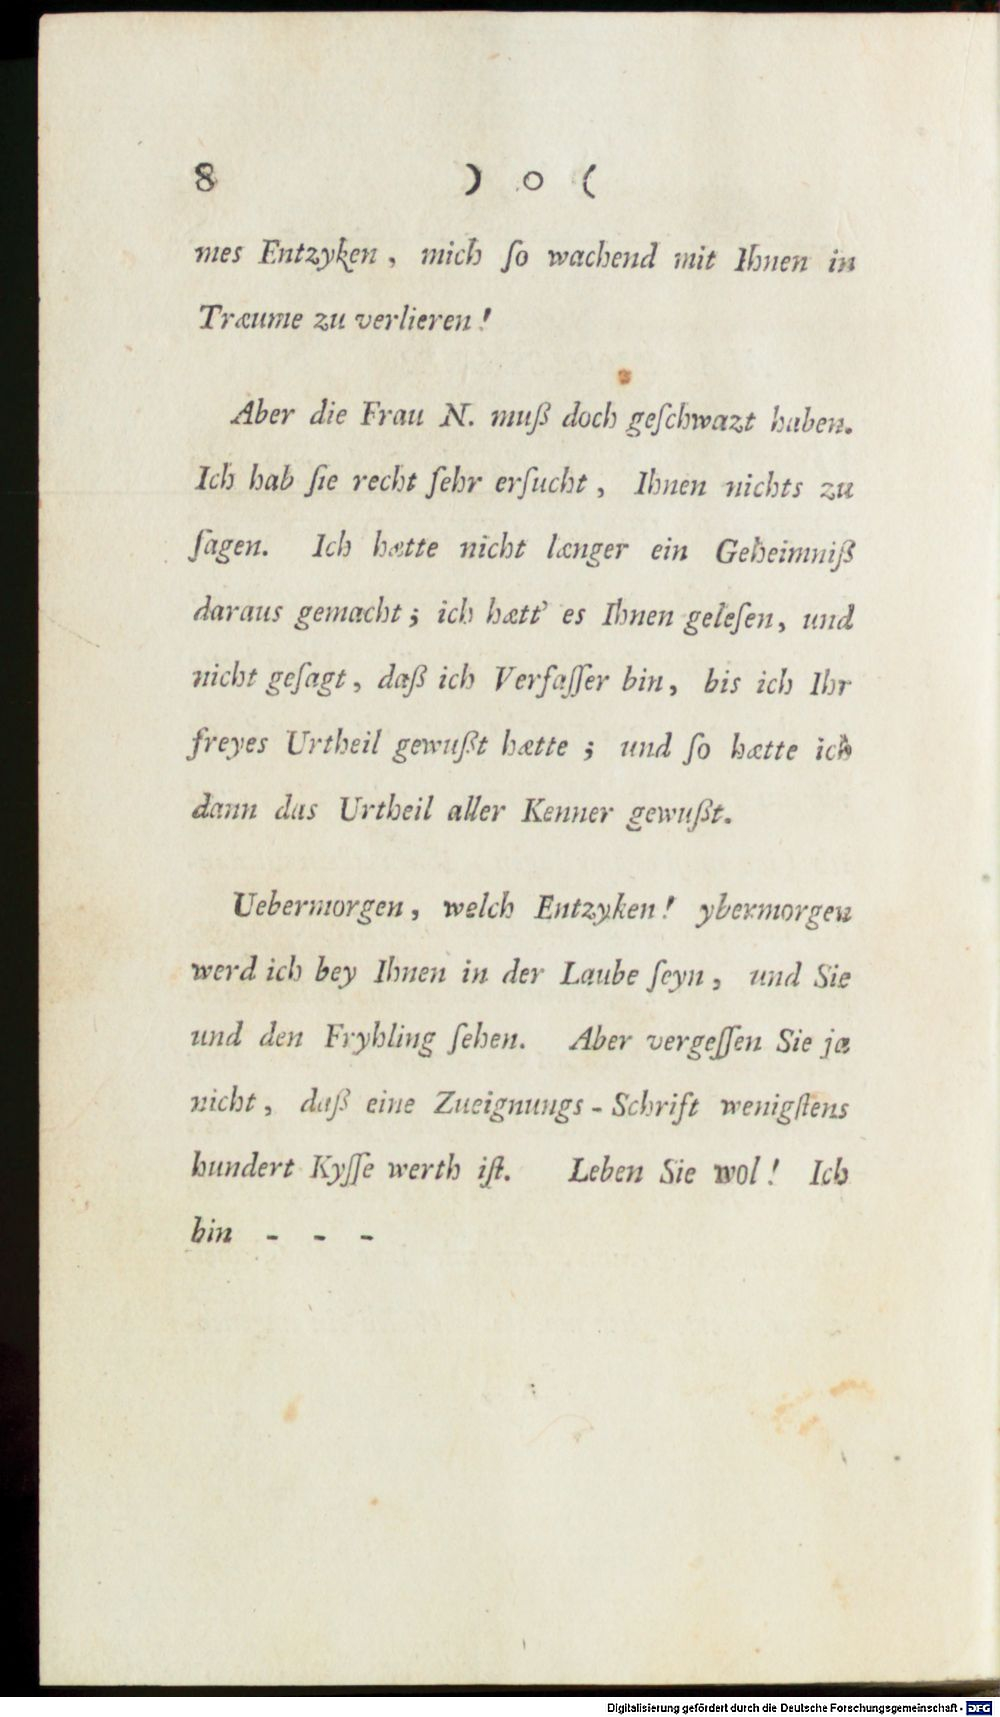 8 ) o (
mes Entzyken, mich ſo wachend mit Ihnen in
Træume zu verlieren!
Aber die Frau N. muß doch geſchwazt haben.
Ich hab ſie recht ſehr erſucht, Ihnen nichts zu
ſagen. Ich hætte nicht længer ein Geheimniß
daraus gemacht; ich hætt' es Ihnen geleſen, und
nicht geſagt, daß ich Verfaſſer bin, bis ich Ihr
freyes Urtheil gewußt hætte; und ſo hætte ich
dann das Urtheil aller Kenner gewußt.
Uebermorgen, welch Entzyken! ybermorgen
werd ich bey Ihnen in der Laube ſeyn, und Sie
und den Fryhling ſehen. Aber vergeſſen Sie ja
nicht, daß eine Zueignungs-Schrift wenigſtens
hundert Kyſſe werth iſt. Leben Sie wol! Ich
bin - - -
Digitalisierung gefördert durch die Deutsche Forschungsgemeinschaft - DFG